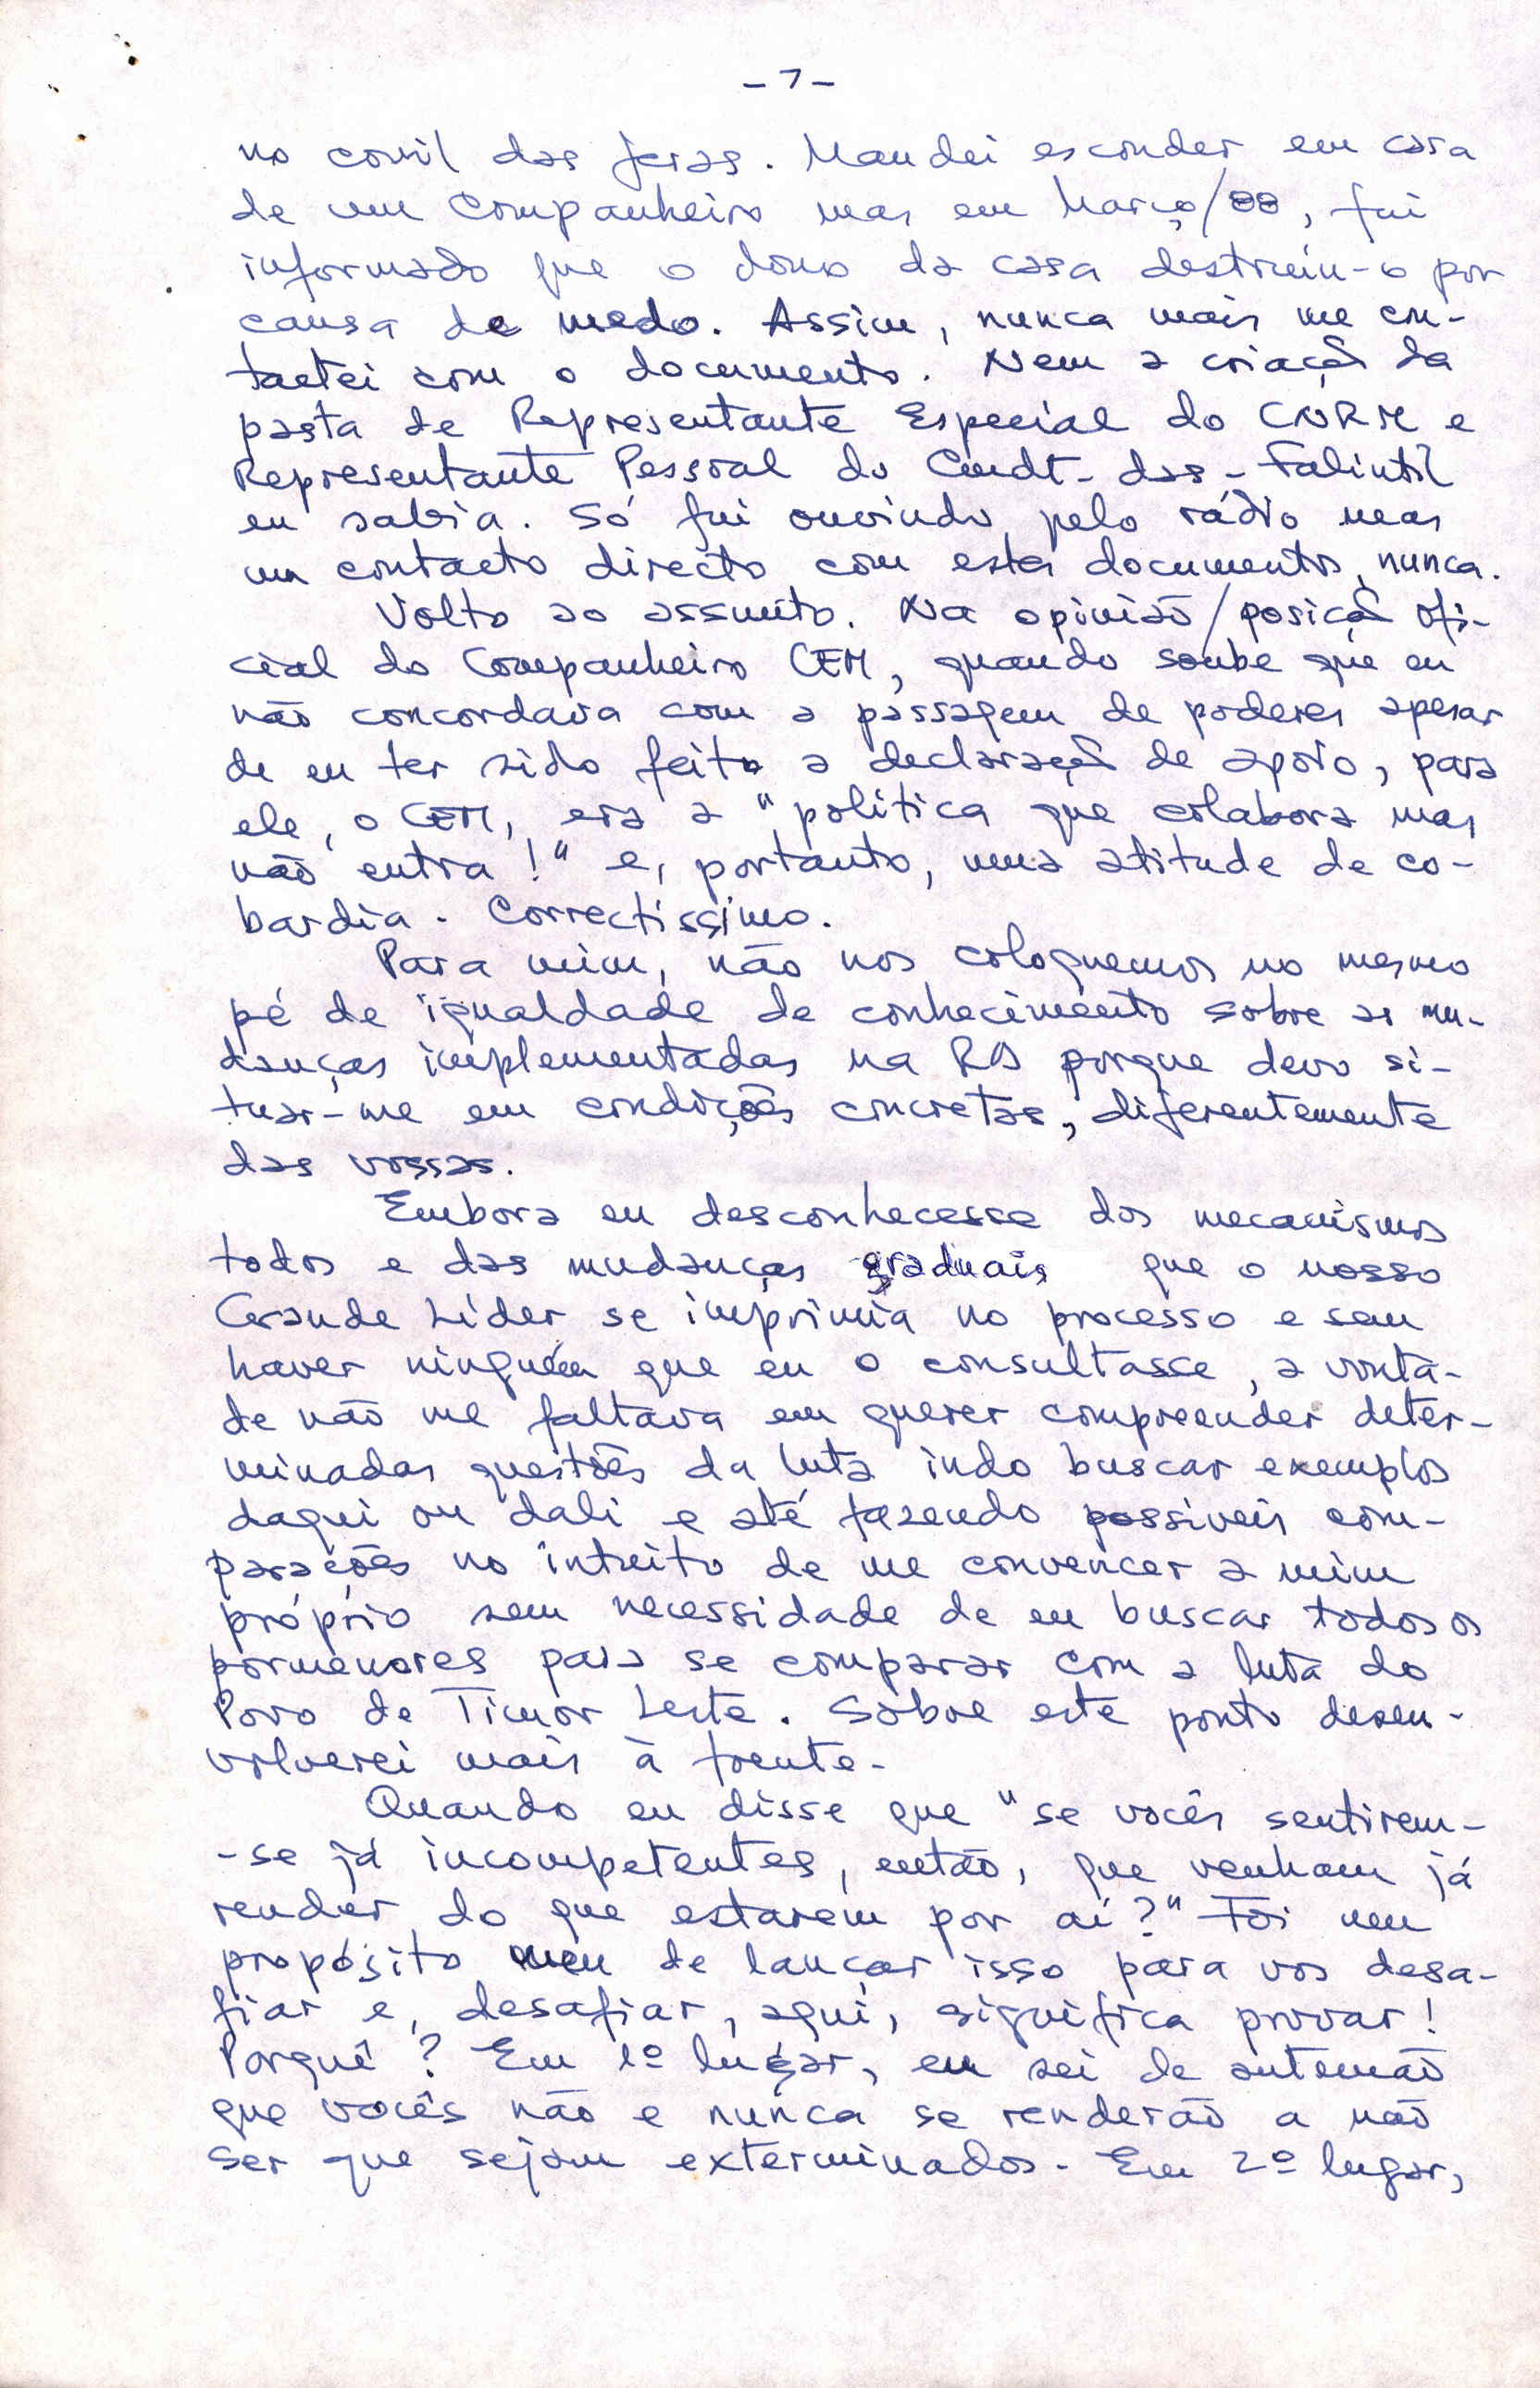 - 7 -
no covil das feras. Mandei esconder em casa
de um Companheiro mas em Março/88, fui
informado que o dono da casa destruiu-o por
causa de medo. Assim, nunca mais me con-
tactei com o documento. Nem a criação da
pasta de Representante Especial do CNRM e
Representante Pessoal do Cmdt-das-Falintil
eu sabia. Só fui ouvindo pelo rádio mas
um contacto directo com estes documentos, nunca.
Volto ao assunto. Na opinião/posição ofi-
cial do Companheiro CEM, quando soube que eu
não concordava com a passagem de poderes apesar
de eu ter sido feito a declaração de apoio, para
ele, o CEM, era a "política que colabora mas
não entra!" e, portanto, uma atitude de co-
bardia. Correctíssimo.
Para mim, não nos coloquemos no mesmo
pé de igualdade de conhecimento sobre as mu-
danças implementadas na RA porque devo si-
tuar-me em condições concretas, diferentemente
das vossas.
Embora eu desconhecesse dos mecanismos
todos e das mudanças graduais que o nosso
Grande Líder se imprimia no processo e sem
haver ninguém que eu o consultasse, a vonta-
de não me faltava em querer compreender deter-
minadas questões da luta indo buscar exemplos
daqui ou dali e até fazendo possíveis com-
parações no intuito de me convencer a mim
próprio sem necessidade de eu buscar todos os
pormenores para se comparar com a luta do
Povo de Timor Leste. Sobre este ponto desen-
volverei mais à frente.
Quando eu disse que "se vocês sentirem-
-se já incompetentes, então, que venham já
render do que estarem por aí?" Foi um
propósito meu de lançar isso para vos desa-
fiar e, desafiar, aqui, significa provar!
Porquê? Em 1º lugar, eu sei de antemão
que vocês não e nunca se renderão a não
ser que sejam exterminados. Em 2º lugar,